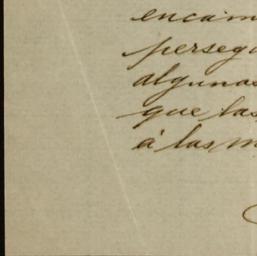 encam
persegu
algunas
que las
á las m